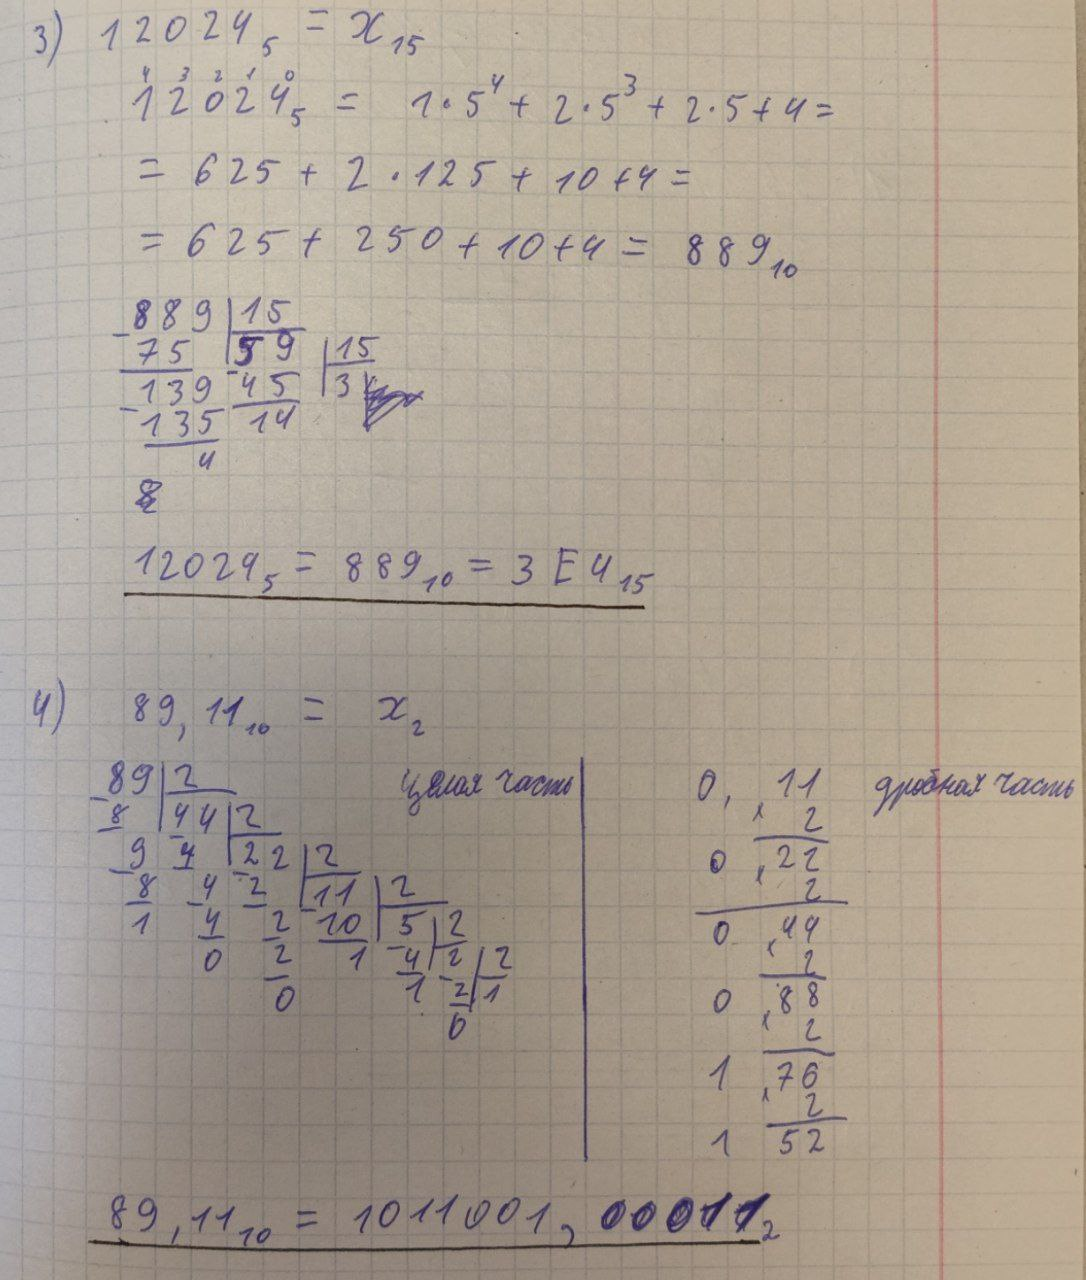 3) 12024₅ = x₁₅
4 3 2 1 0
12024₅ = 1·5⁴ + 2·5³ + 2·5 + 4 =
= 625 + 2·125 + 10 + 4 =
= 625 + 250 + 10 + 4 = 889₁₀
889 | 15
- 75 | 59 | 15
139 - 45 | 3
- 135 14
4
12024₅ = 889₁₀ = 3E4₁₅
4) 89,11₁₀ = x₂
целая часть
89 | 2
- 8 | 44 | 2
- 9 - 4 | 22 | 2
8 - 4 - 2 | 11 | 2
1 4 - 2 - 10 | 5 | 2
0 2 1 - 4 | 2 | 2
0 1 - 2 | 1
0
дробная часть
0,11
x 2
0,22
x 2
0,44
x 2
0,88
x 2
1,76
x 2
1 52
89,11₁₀ = 1011001,00011₂